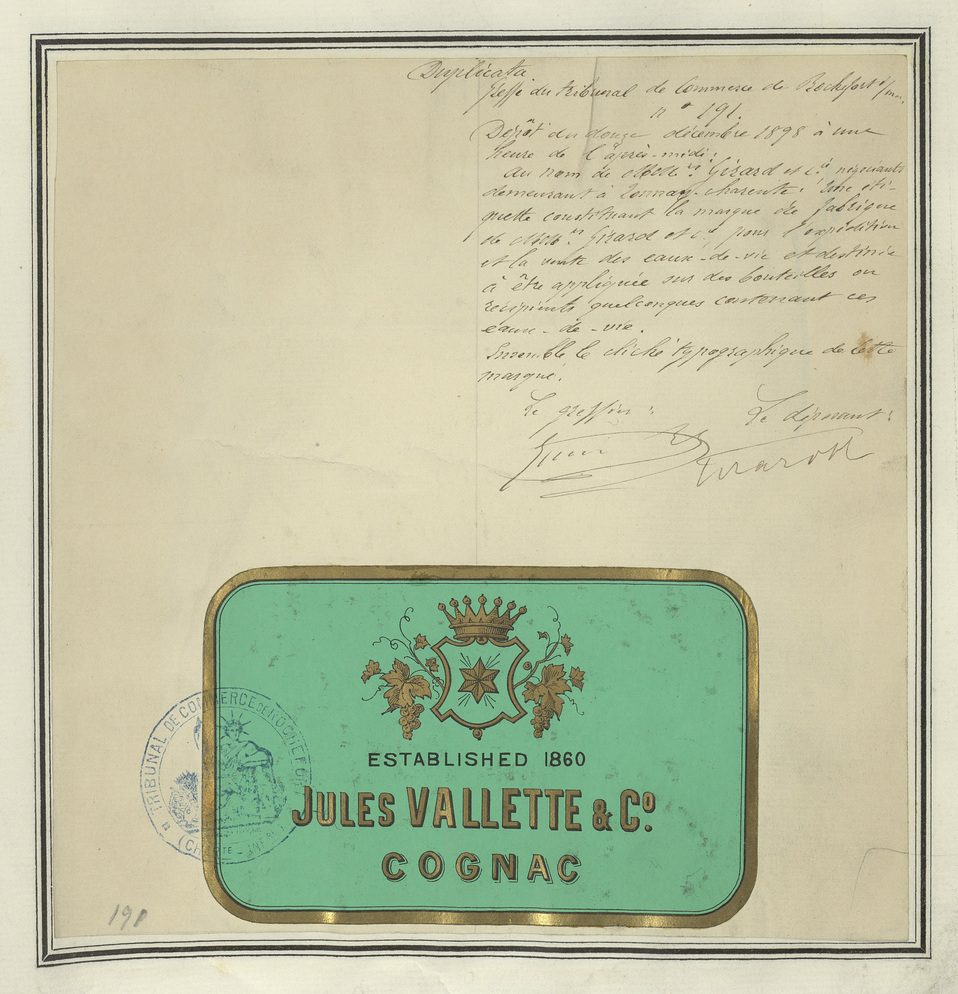 Duplicata
Greffe du tribunal de Commerce de Rochefort s/m.
n° 191.
Dépôt du douze décembre 1898 à une
heure de l'après-midi.
au nom de MM. rs Girard et Cie négociants
demeurant à Tonnay-charente. Une éti-
quette constituant la marque de fabrique
de MM. rs Girard et Cie pour l'expédition
et la vente des eaux-de-vie et destinée
à être appliquée sur des bouteilles ou
récipients quelconques contenant ces
eaux-de-vie.
Ensemble le cliché typographique de cette
marque.
Le greffier: Le déposant:
Girard
ESTABLISHED 1860
JULES VALLETTE & Co.
COGNAC
TRIBUNAL DE COMMERCE DE ROCHEFORT
(CHARTE-INF
191